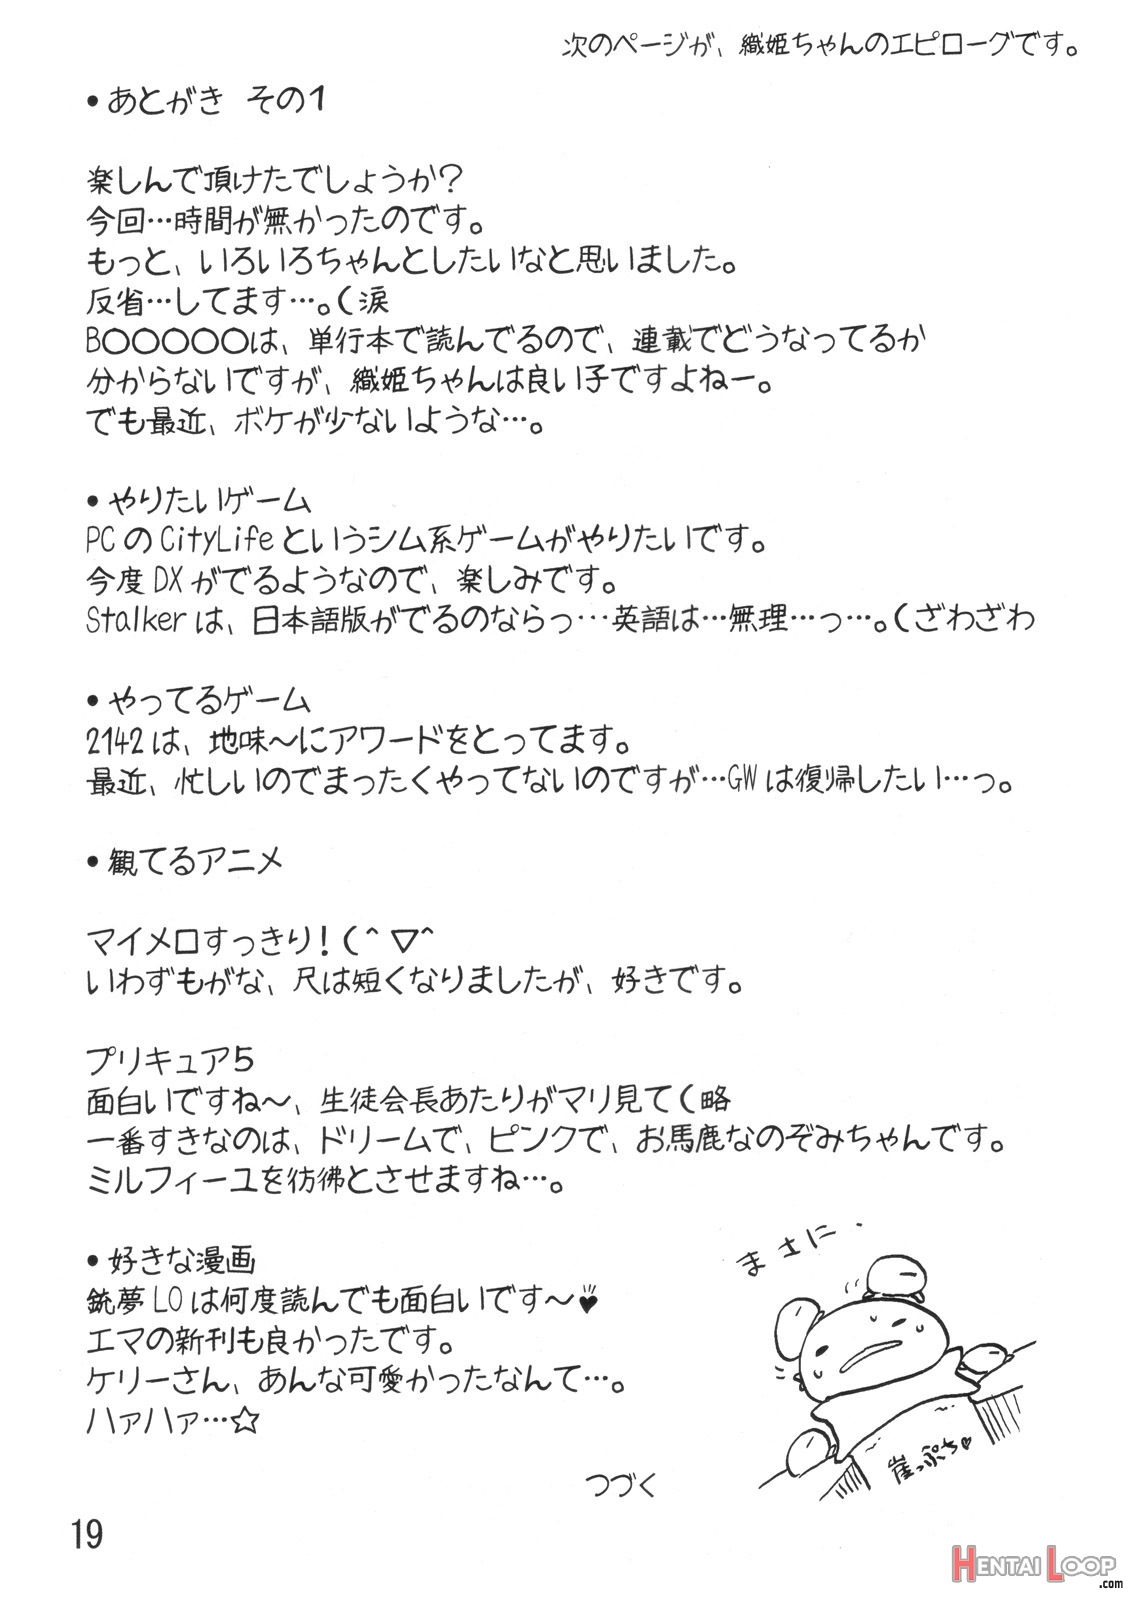 次のページが、織姫ちゃんのエピローグです。
•あとがき その1
楽しんで頂けたでしょうか？
今回…時間が無かったのです。
もっと、いろいろちゃんとしたいなと思いました。
反省…してます…。(涙
B○○○○○は、単行本で読んでるので、連載でどうなってるか
分からないですが、織姫ちゃんは良い子ですよねー。
でも最近、ボケが少ないような…。
•やりたいゲーム
PCのCityLifeというシム系ゲームがやりたいです。
今度DXがでるようなので、楽しみです。
Stalkerは、日本語版がでるのならっ…英語は…無理…っ…。(ざわざわ
•やってるゲーム
2142は、地味～にアワードをとってます。
最近、忙しいのでまったくやってないのですが…GWは復帰したい…っ。
•観てるアニメ
マイメロすっきり！(^▽^
いわずもがな、尺は短くなりましたが、好きです。
プリキュア5
面白いですね～、生徒会長あたりがマリ見て(略
一番すきなのは、ドリームで、ピンクで、お馬鹿なのぞみちゃんです。
ミルフィーユを彷彿とさせますね…。
•好きな漫画
銃夢LOは何度読んでも面白いです～♥
エマの新刊も良かったです。
ケリーさん、あんな可愛かったなんて…。
ハァハァ…☆
まさに・
崖っぷち♥
つづく
19
HENTAI LOOP
.com